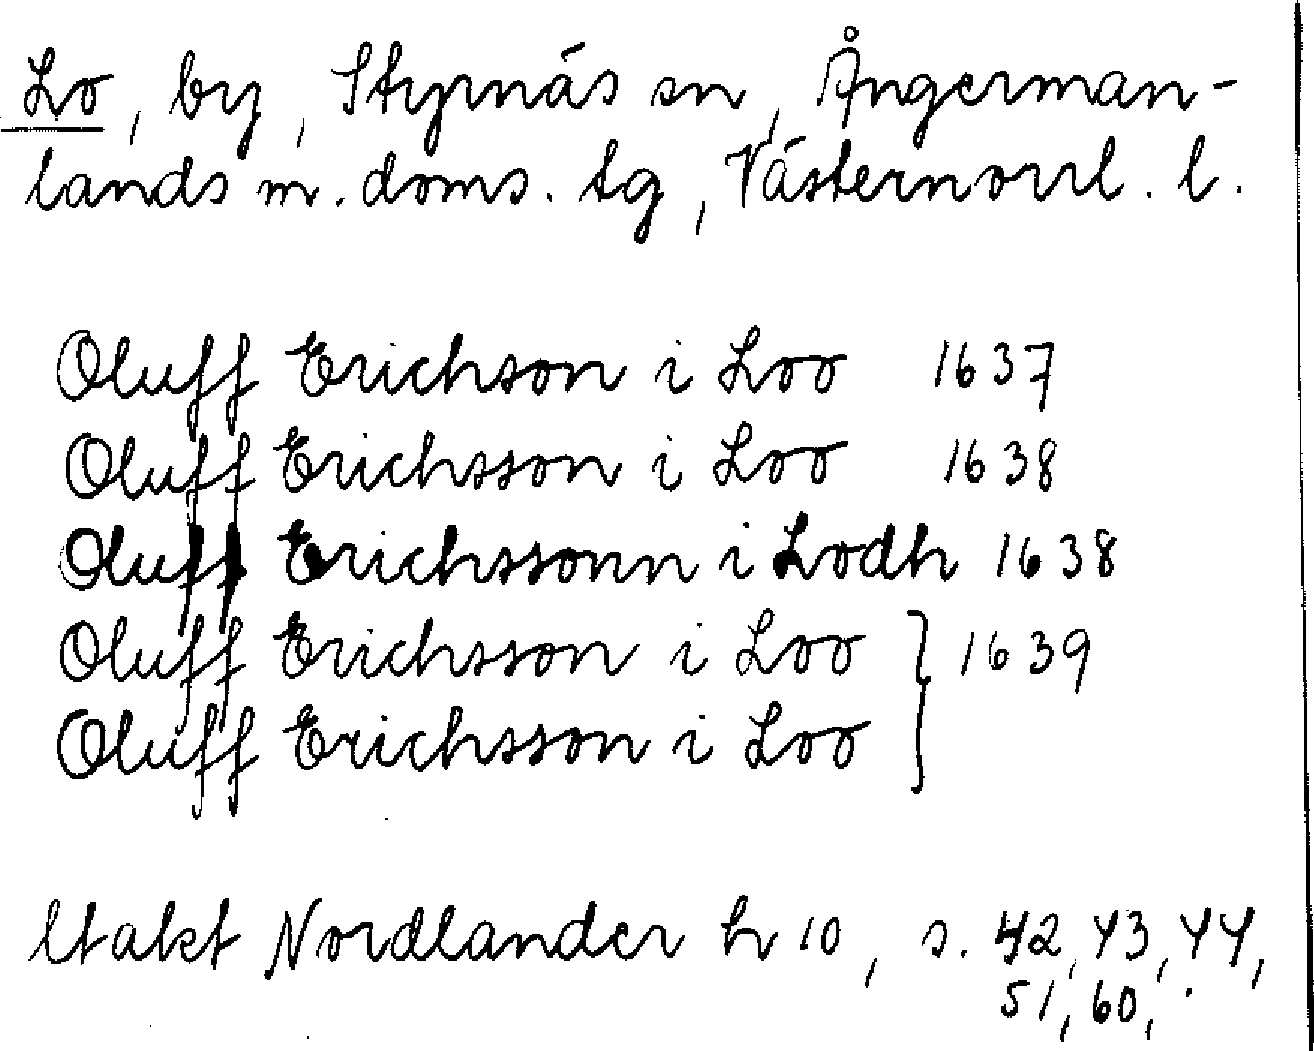 Lo, by, Styrnäs sn, Ångerman-
lands m. doms. tg, Västernorrl. l.
Oluff Erichson i Loo 1637
Oluff Erichsson i Loo 1638
Oluff Erichssonn i Lodh 1638
Oluff Erichsson i Loo } 1639
Oluff Erichsson i Loo
Utakt Nordlander h 10, s. 42, 43, 44,
51, 60,